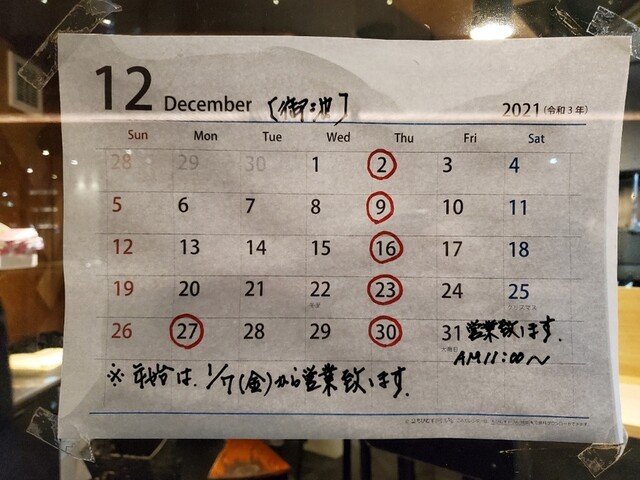 12 December [御池] 2021 (令和3年)
Sun Mon Tue Wed Thu Fri Sat
28 29 30 1 2 3 4
5 6 7 8 9 10 11
12 13 14 15 16 17 18
19 20 21 22 23 24 25
冬至 クリスマス
26 27 28 29 30 31 営業致します.
大晦日 AM11:00〜
※ 年始は、1/7(金)から営業致します.